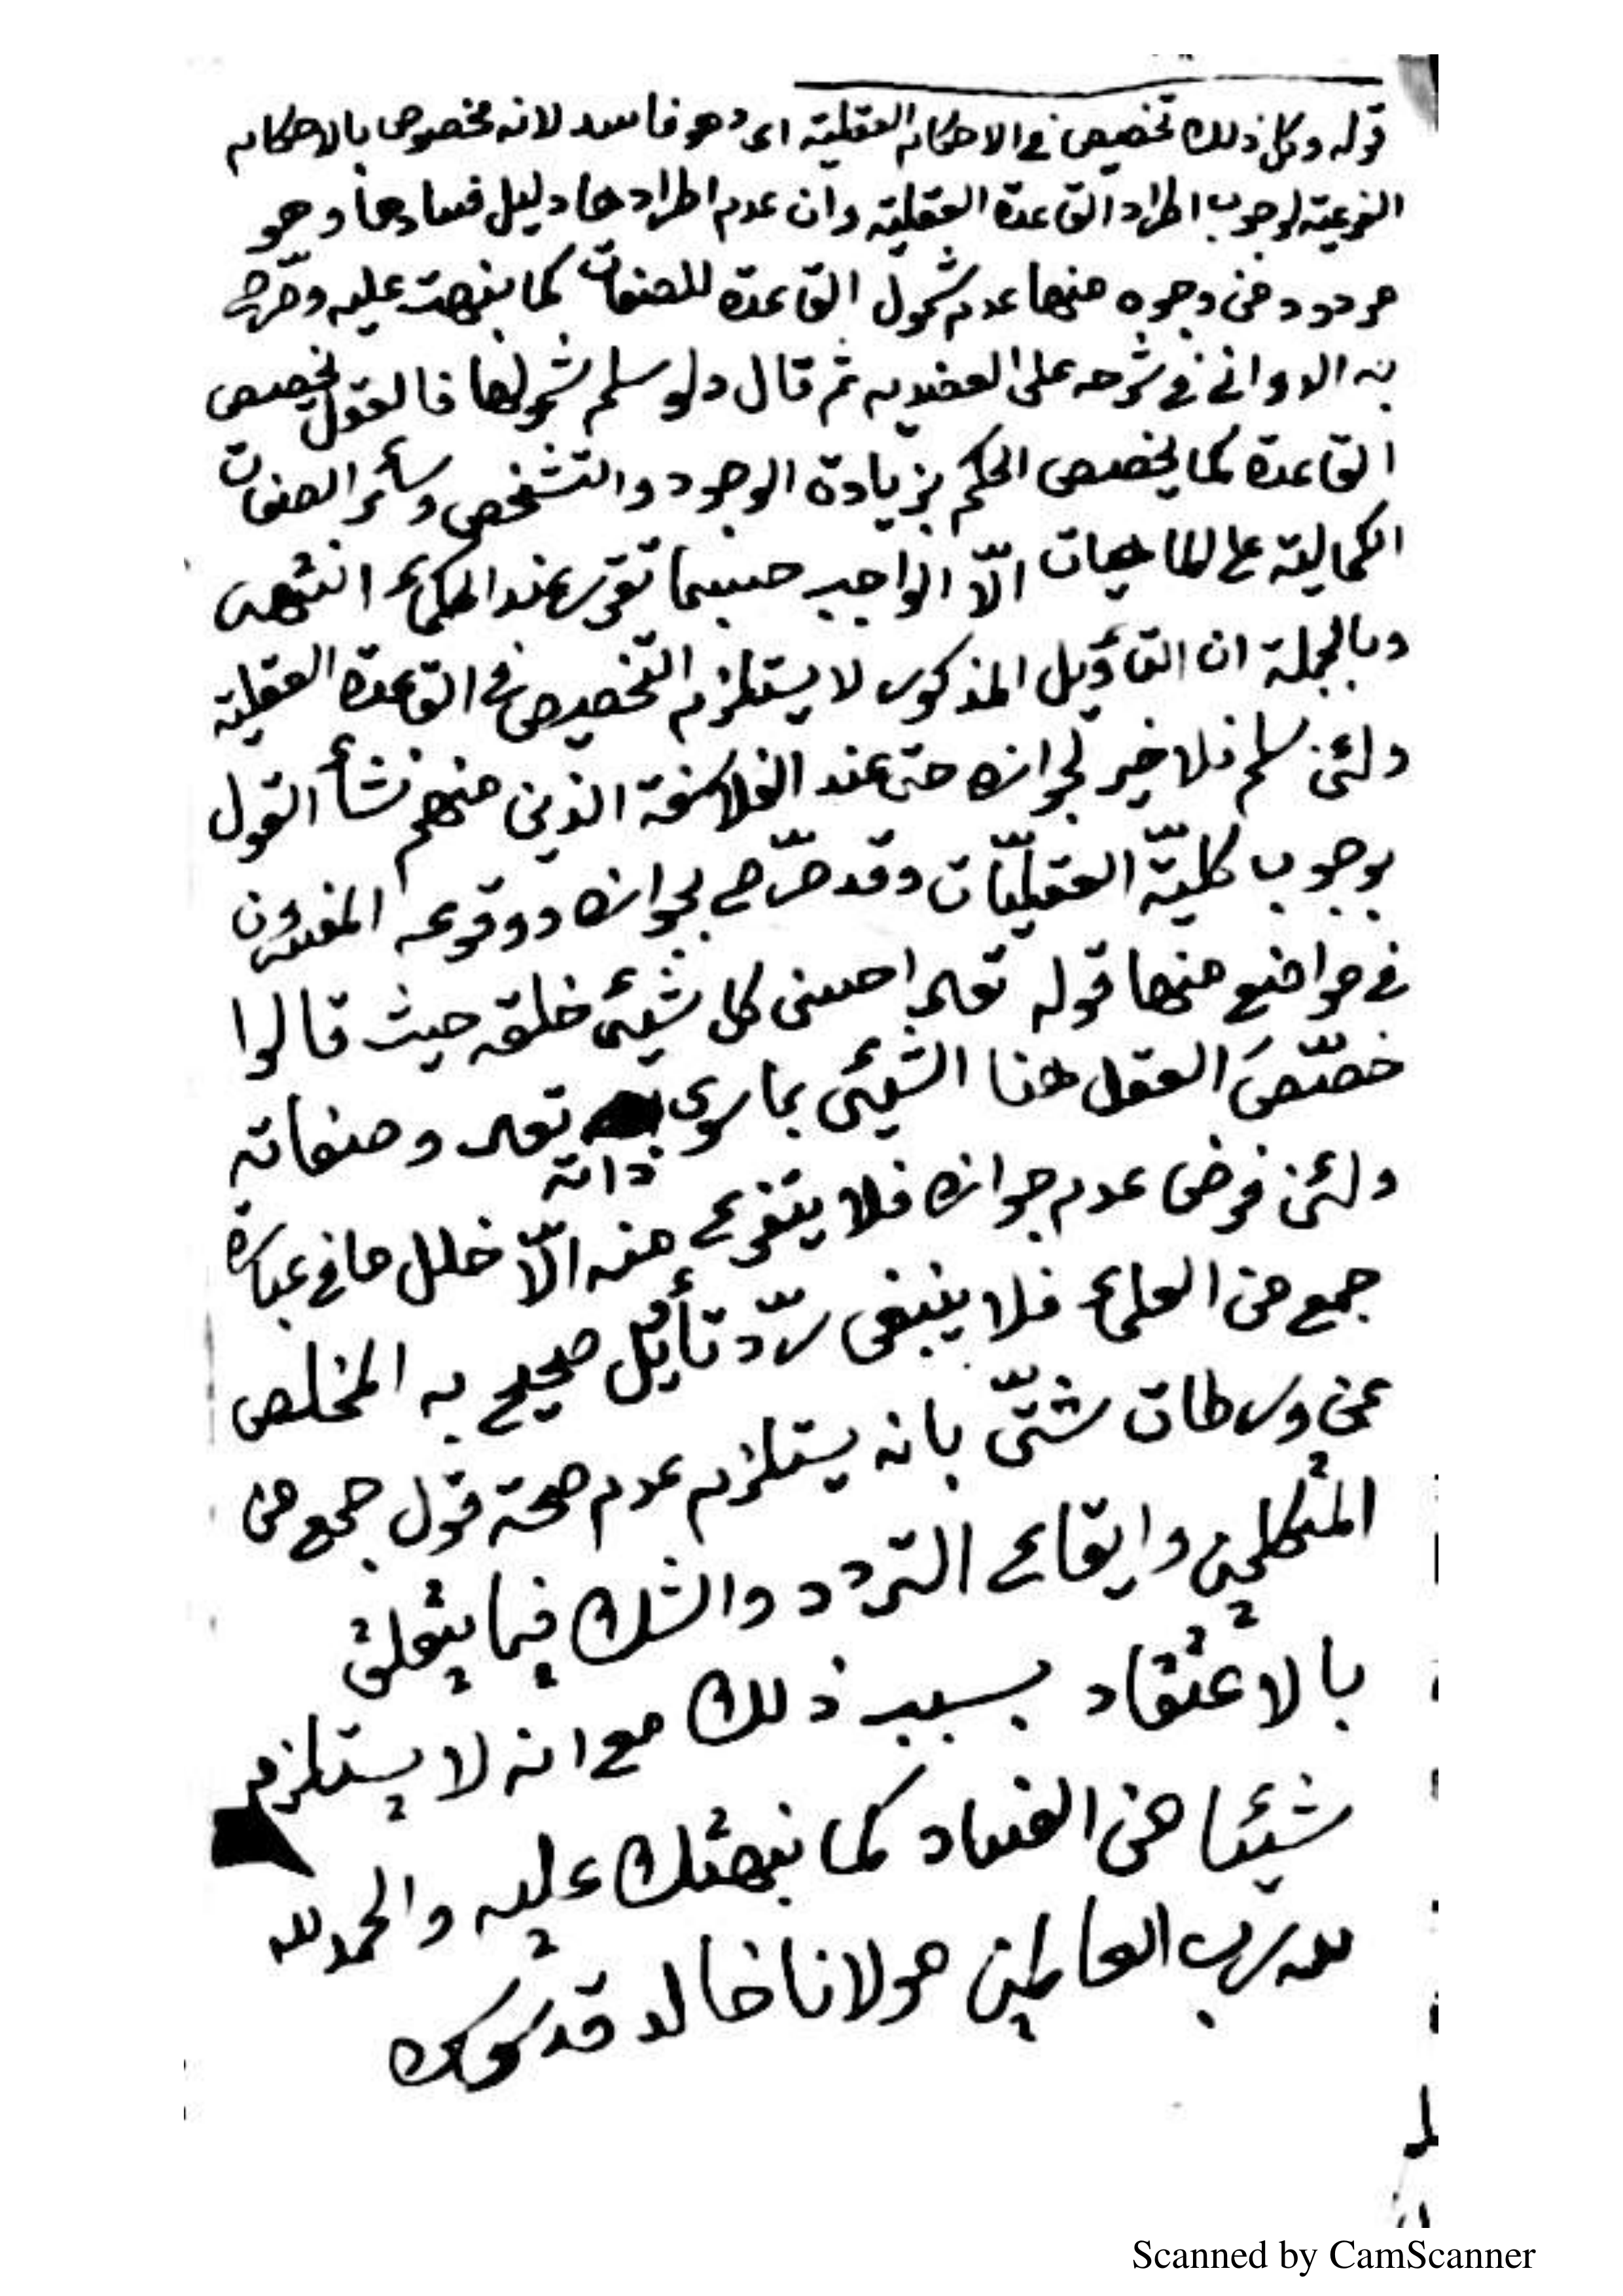 قوله وكل ذلك تخصيص في الاحكام العقلية اى وهو فاسد لانه مخصوص بالاحكام
الفرعية لوجوب اطراد القاعدة العقلية وان عدم اطرادها دليل فسادها وهو
مردود من وجوه منها عدم شمول القاعدة للصفات كما نبهت عليه وصرّح
به الدوانى في شرحه على العضديه ثم قال ولو سلم شمولها فالقول بتخصيص
القاعدة كما يخصص الحكم بزيادة الوجود والتشخص وسائر الصفات
الكمالية على الماهيات الّا الواجب حسبما تقرر عند الحكماء انتهى
وبالجملة ان التأويل المذكور لا يستلزم التخصيص في القاعدة العقلية
ولئن سلم فلا ضير لجوازه حتى عند الفلاسفة الذين منهم نشأ القول
بوجوب كليّة العقليّات وقد صرّح بجوازه ووقوعه المفسرون
في مواضع منها قوله تعالى احسن كل شيئ خلقه حيث قالوا
خصّصَ العقل هنا الشيئ بما سوى ذاته تعالى وصفاته
ولئن فرض عدم جوازه فلا يتفرع منه الّا خلل ما في عبارة
جمع من العلماء فلا ينبغى ردّ تأويل صحيح به المخلص
عن ورطات شتّى بانه يستلزم عدم صحة قول جمع من
المتكلمين وايقاع التردد والشك فيما يتعلق
بالاعتقاد بسبب ذلك مع انه لا يستلزم
شيئا من الفساد كما نبهتك عليه والحمد لله
لله رب العالمين مولانا خالد قدس سره
Scanned by CamScanner